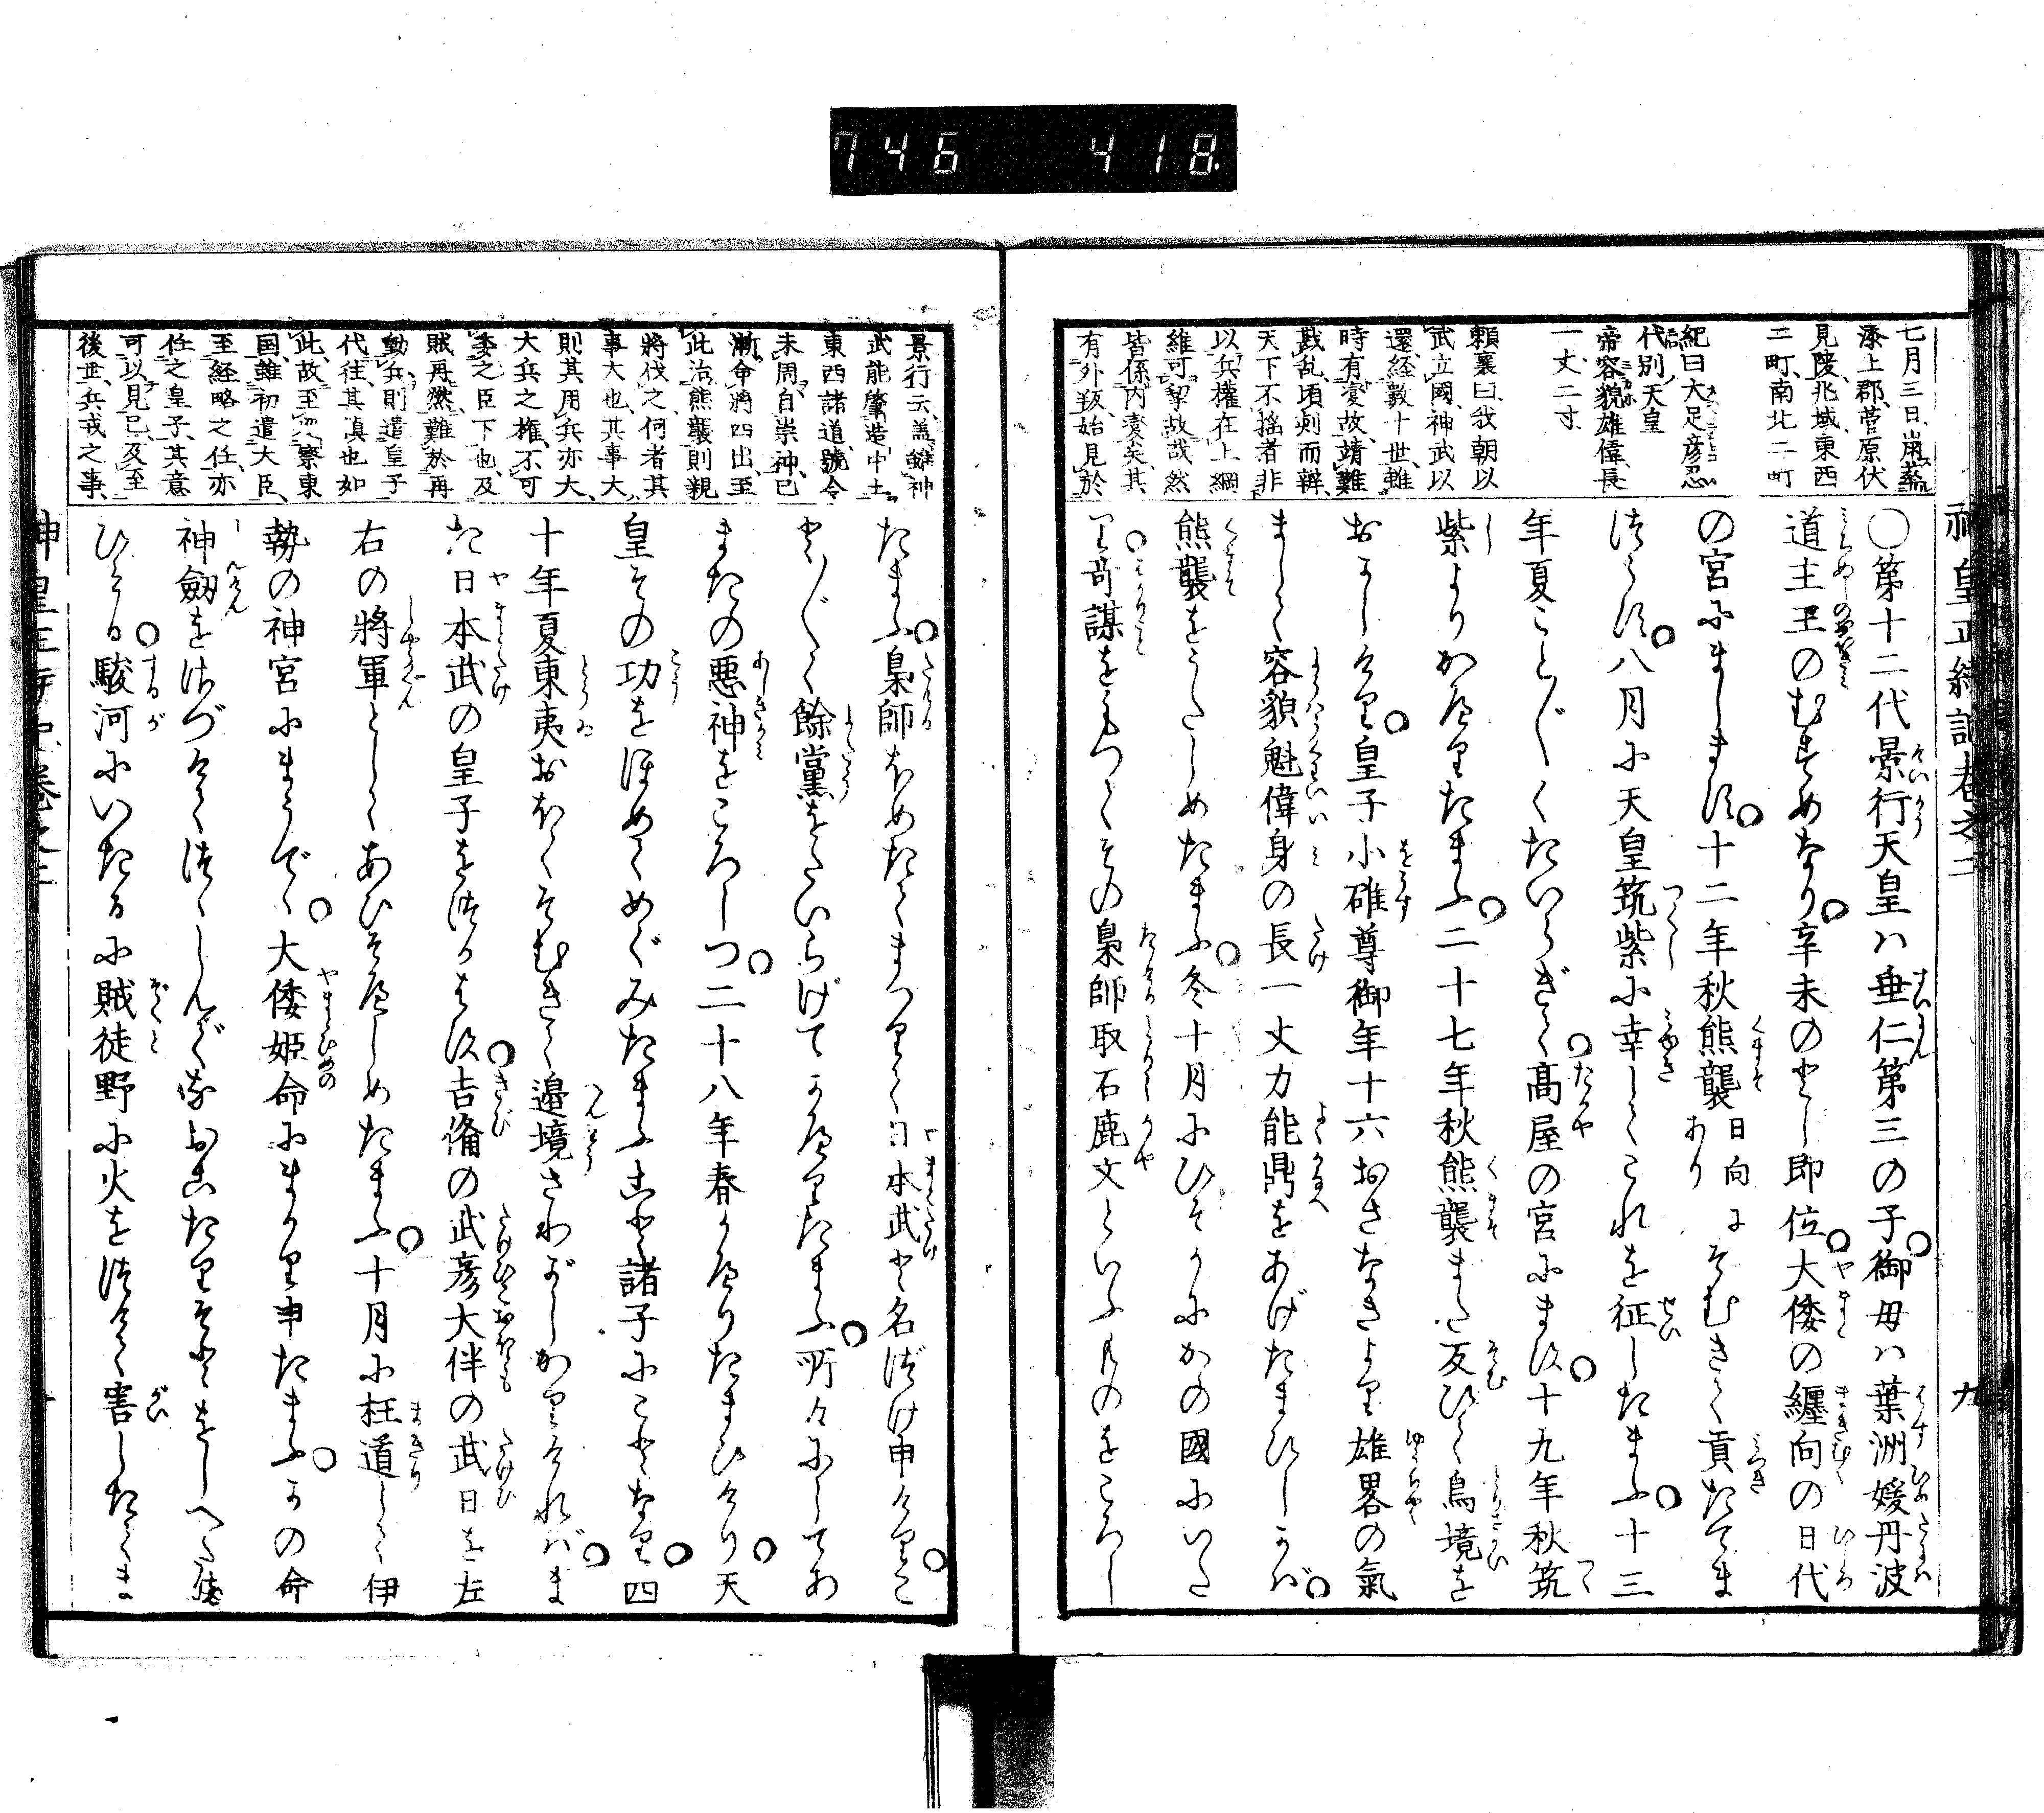 746 418
七月三日崩葬
添上郡菅原伏
見陵兆域東西
二町南北二町
紀曰大足彦忍
代別天皇
帝容貌雄偉長
一丈二寸
頼襄曰我朝以
武立國神武以
還経數十世雖
時有変故靖難
戡乱頃刻而辨
天下不揺者非
以兵權在上綱
維可挈故哉然
皆係内変矣其
有外叛始見於
〇第十二代景行天皇ハ垂仁第三の子御母ハ葉洲媛丹波
道主王のむすめなり辛未のとし即位大倭の纏向の日代
の宮にまします十二年秋熊襲日向にありそむきて貢たてま
つらす八月に天皇筑紫に幸してこれを征したまふ十三
年夏こと〴〵くたいらぎて高屋の宮にます十九年秋筑
紫よりかへりたまふ二十七年秋熊襲また反ひて烏境を
おかしけり皇子小碓尊御年十六おさなきより雄畧の氣
まして容貌魁偉身の長一丈力能鼎をあげたまひしかば
熊襲をうたしめたまふ冬十月にひそかにかの國にいた
り奇謀をもつてその梟師取石鹿文といふものをころし
神皇正統記巻之二 九
景行云蓋雖神
武能肇造中土
東西諸道號令
未周自崇神已
漸命將四出至
此治熊襲則親
將伐之何者其
事大也其事大
則其用兵亦大
大兵之権不可
委之臣下也及
賊再然難於再
動兵則遣皇子
代往其真也如
此故至察東
国雖初遣大臣
至経略之任亦
任之皇子其意
可以見已及至
後世兵戎之事
たまふ梟師ほめたてまつりて日本武と名づけ申けりこ
と〴〵く餘黨をたいらげてかへりたまふ所々にしてあ
またの悪神をころしつ二十八年春かへりたまひけり天
皇その功をほめてめぐみたまふこと諸子にことなり四
十年夏東夷おほくそむきて邊境さわがしかりければま
た日本武の皇子をつかはす吉備の武彦大伴の武日を左
右の將軍としてあひそへしめたまふ十月に枉道して伊
勢の神宮にまうでて大倭姫命にまかり申たまふかの命
神劔をさづけてつゝしんでなおこたりそとをしへ
ひける駿河にいたるに賊徒野に火をつけて害したてま